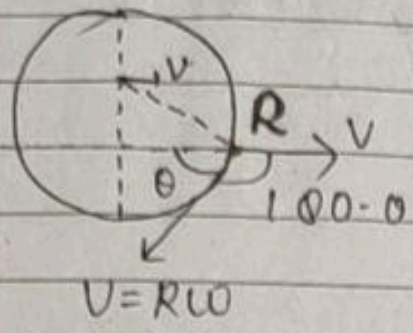 v
R
V
θ
180-θ
V=Rω